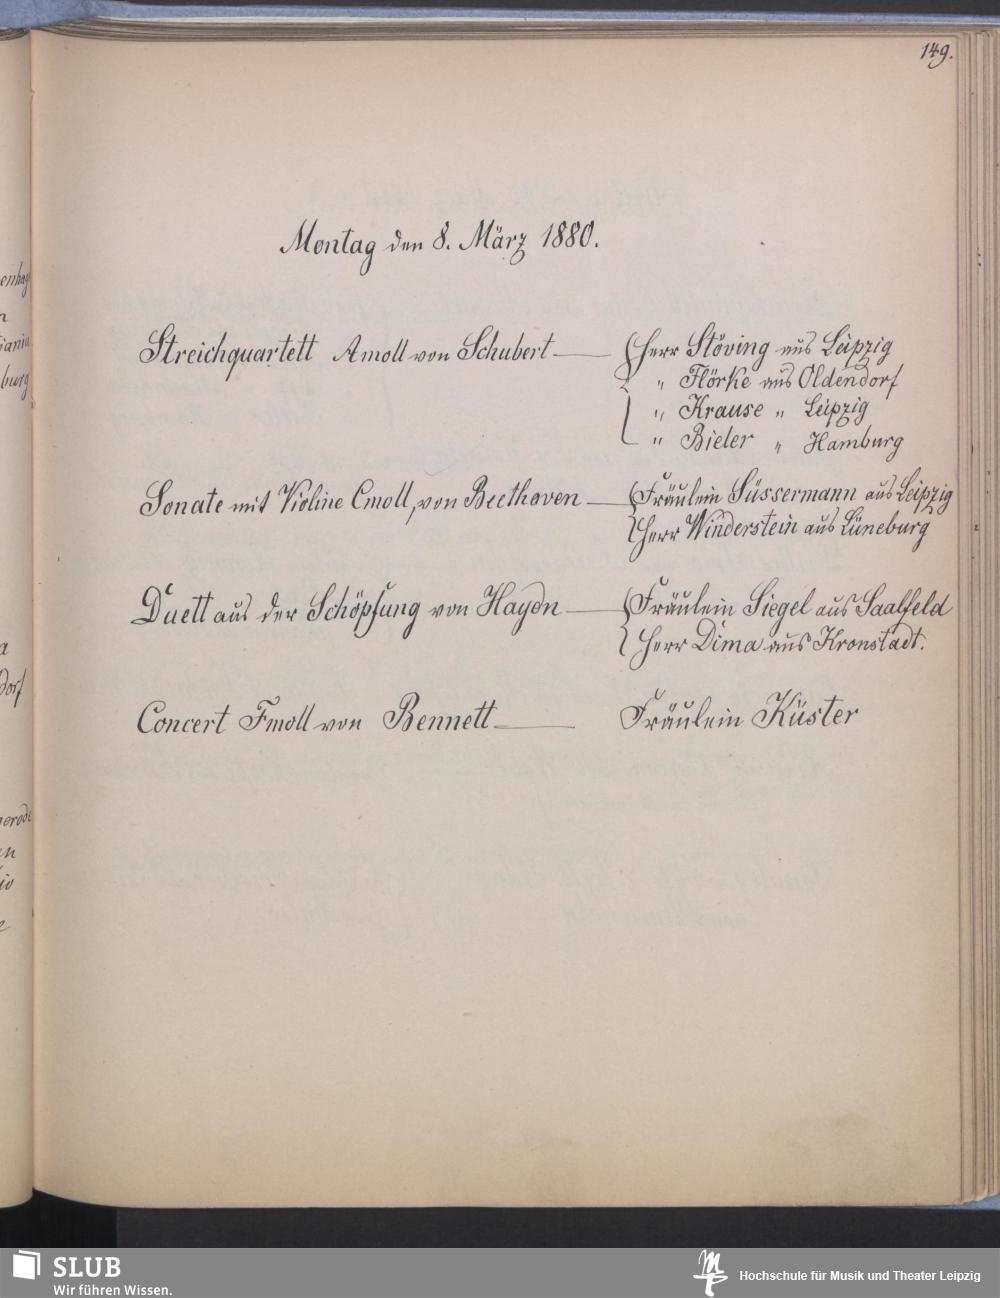 149.
Montag den 8. März 1880.
Streichquartett Amoll von Schubert — Herr Stöving aus Leipzig
" Flörke aus Oldendorf
" Krause " Leipzig
" Bieler " Hamburg
Sonate mit Violine Cmoll, von Beethoven — Fräulein Süssermann aus Leipzig
Herr Winderstein aus Lüneburg
Duett aus der Schöpfung von Haydn — Fräulein Siegel aus Saalfeld
Herr Dima aus Kronstadt.
Concert Fmoll von Bennett — Fräulein Küster
SLUB
Wir führen Wissen.
Hochschule für Musik und Theater Leipzig